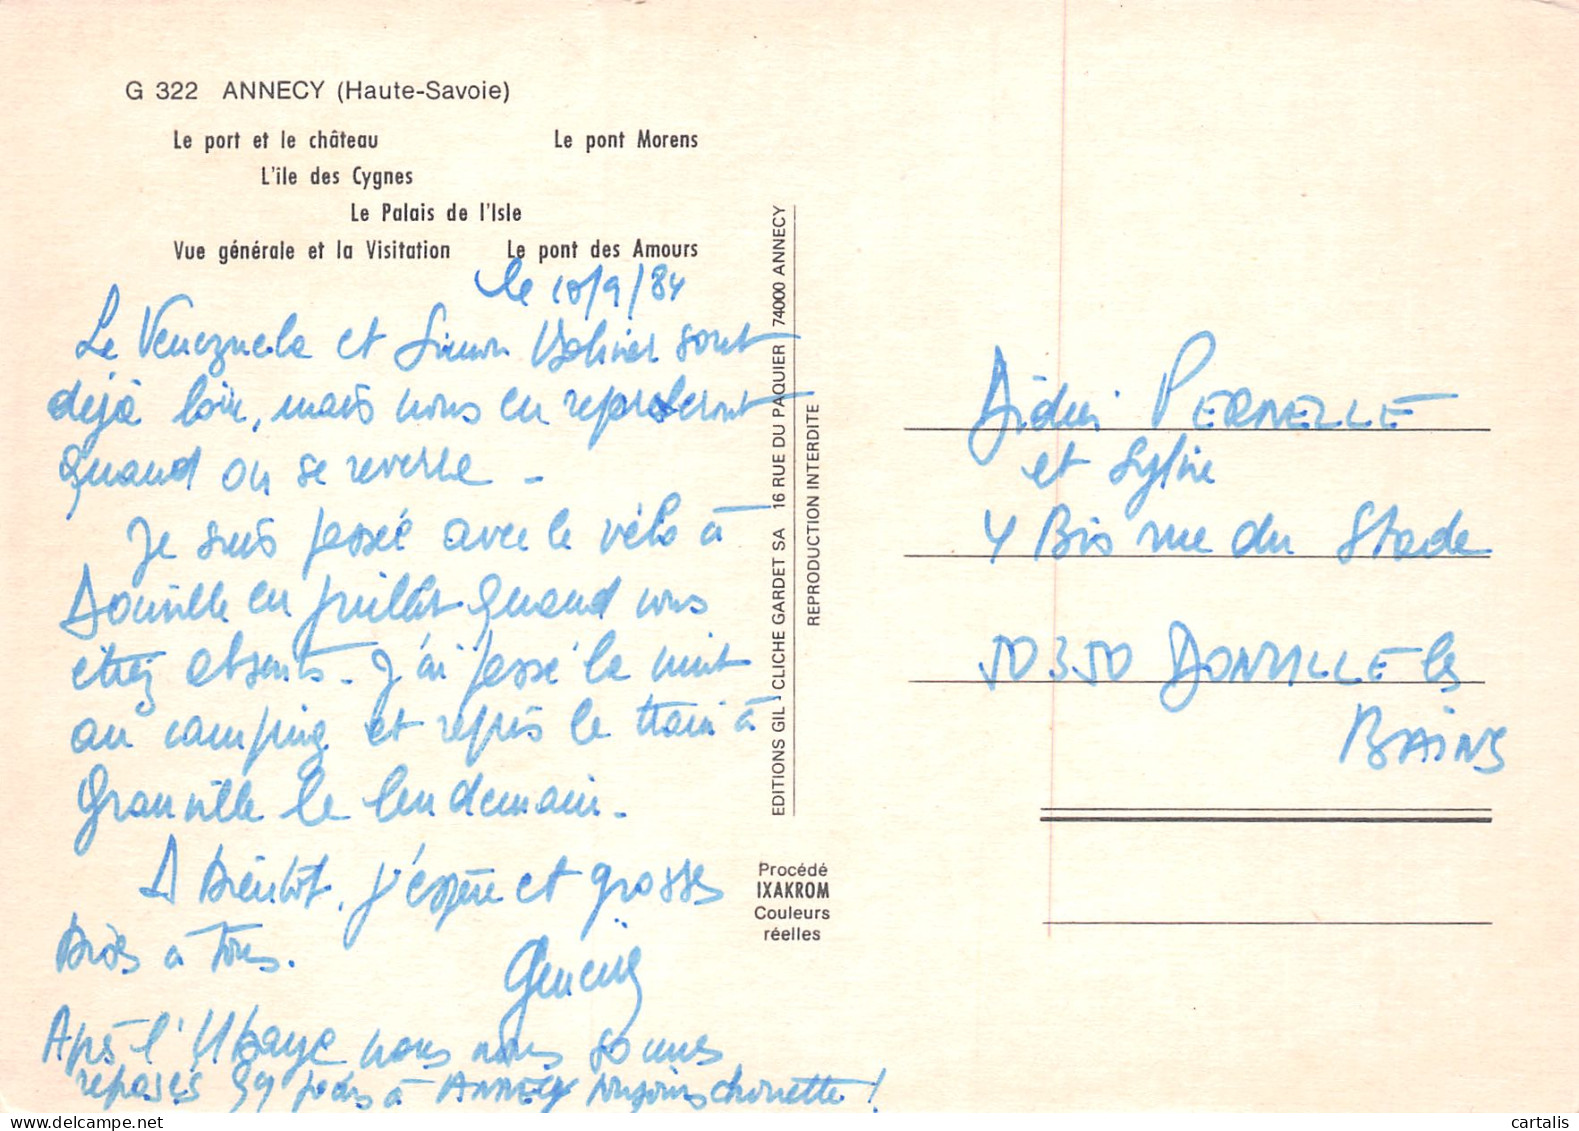 G 322 ANNECY (Haute-Savoie)
Le port et le château Le pont Morens
L'ile des Cygnes
Le Palais de l'Isle
Vue générale et la Visitation Le pont des Amours
le 10/9/84
Le Venezuela et Simon Bolivar sont
déjà loin, mais nous en reparlerons
quand on se reverra -
Je suis passée avec le vélo à
Donville en juillet quand vous
étiez absents - J'ai passé la nuit
au camping et repris le train à
Granville le lendemain -
A Bientôt, j'espère et grosses
Bises à tous.
Après l'Ubaye nous nous sommes
reposés jours à ANNECY toujours chouette !
EDITIONS GIL - CLICHE GARDET SA 16 RUE DU PAQUIER 74000 ANNECY
REPRODUCTION INTERDITE
Procédé
IXAKROM
Couleurs
réelles
Didier PERNELLE
et Sylvie
4 Bis rue du Stade
50350 DONVILLE les
BAINS
cartalis